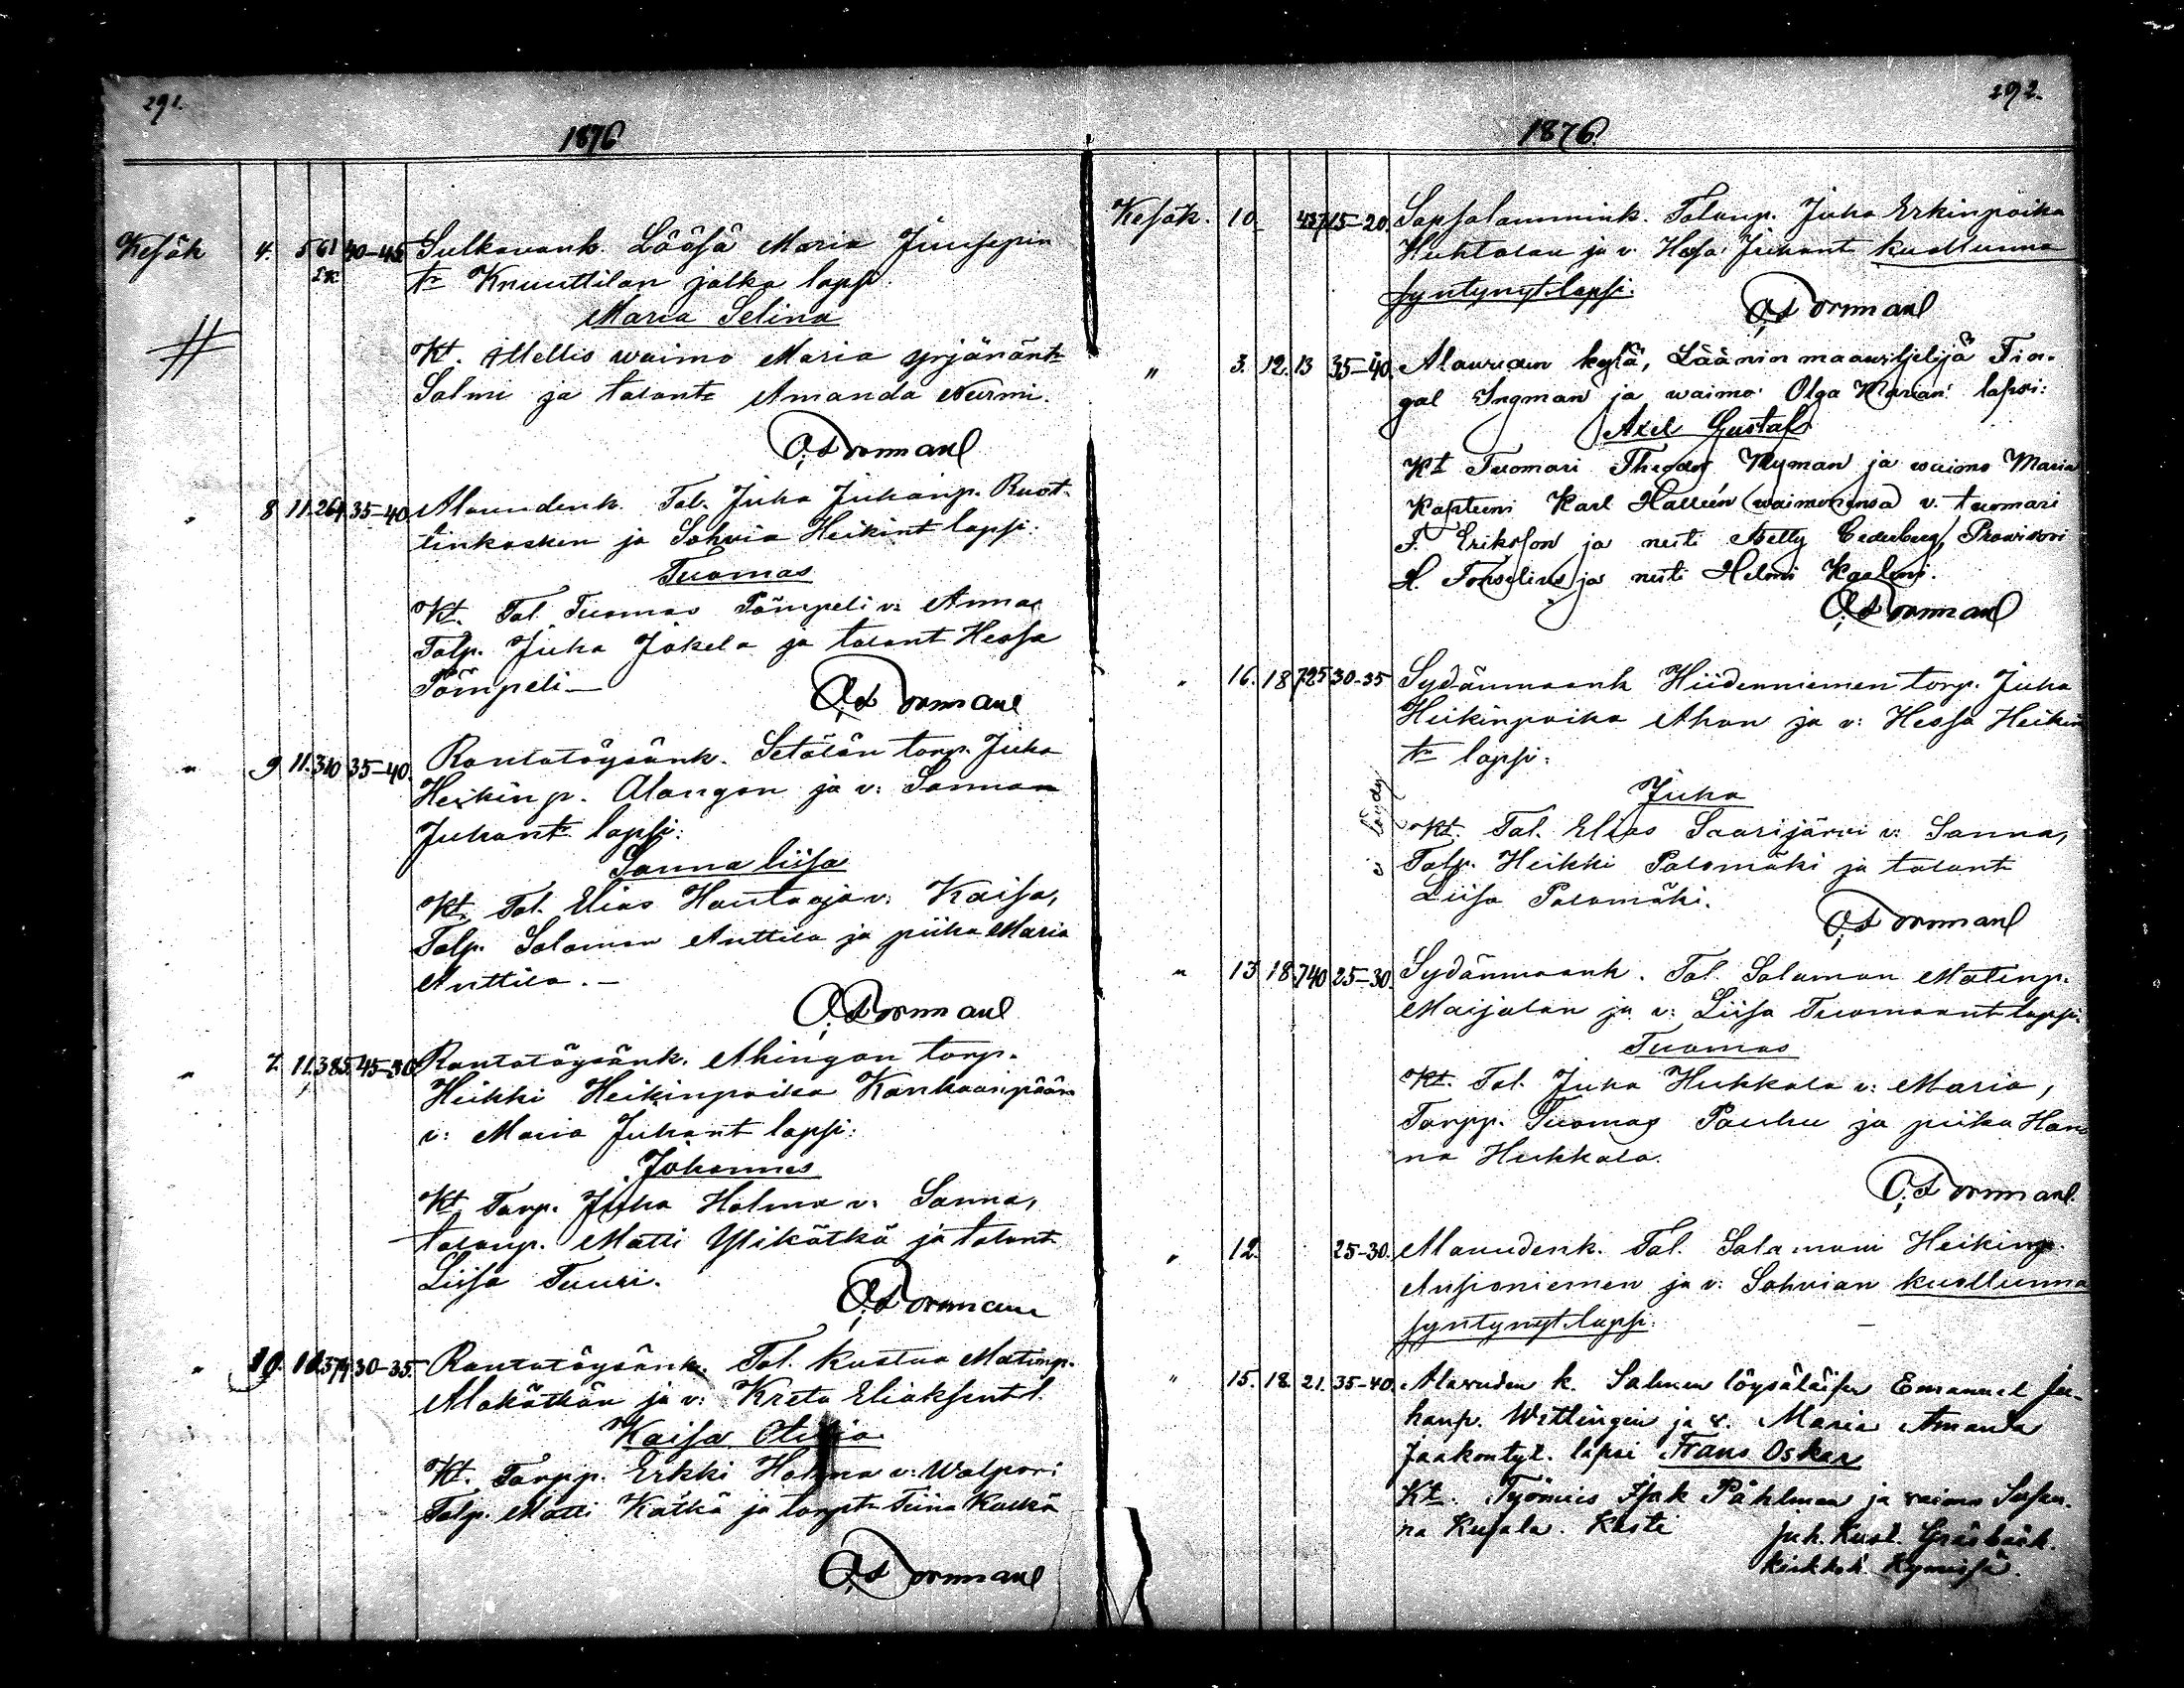 291.
1876
Kesäk 4. 5 61 40-45 Sulkavank. Lääsä Maria Juusepin
tr Knuuttilan jalka lapsi
Maria Selina
Kt. Mellis waimo Maria yrjänänt
Salmi ja talont Amanda Nurmi.
O. Dormaul
" 8 11. 264 35-40 Alavudenk. Tal. Juha Juhanp. Ruot-
tinkosken ja Sohvia Heikint lapsi:
Tuomas
Kt. Tal. Tuomas Pömpeli v: Anna
Talp. Juha Jokela ja talont Hessa
Pömpeli —
" 9 11. 310 35-40. Rantatöysänk. Setälän torp. Juha
Heikinp. Alangon ja v: Sannan
Juhant lapsi:
Sanna liisa
Kt. Tal. Elias Hautaoja v: Kaisa,
Talp. Salomon Anttila ja piika Maria
Anttila. —
" 7. 11. 385. Rantatöysänk. Ahingon torp.
Heikki Heikinpoika Kankaanpään
v: Maria Juhant lapsi:
Johannes
Kt. Torp. Juha Holma v: Sanna,
talonp. Matti Ylikätkä ja talont
Liisa Tuuri.
" 10. 30-35. Rantatöysänk. Tal. Kustaa Matinp.
Alakätkän ja v: Kreta Eliaksent l.
Kaisa Otilia
Kt. Torpp. Erkki Holma v: Walpori
Talp. Matti Kätkä ja torpt Tiina
292.
1876.
Kesäk. 10. 437 15-20. Sapsalammink. Talonp. Juha Erkinpoika
Huhtalan ja v. Hessa Juhant kuolluna
syntynyt lapsi.
" 3. 12. 13 35-40. Alavuden kylä, Läänin maanviljelijä Fin-
gal Ingman ja waimo Olga Marian lapsi:
Axel Gustaf
Kt Tuomari Theodor Nyman ja waimo Maria
Kapteeni Karl Hallén (waimonensa) v. tuomari
F. Erikson ja neiti Betty Cederberg, Proviisori
A. Forselius ja neiti Helmi
" 16. 18 725 30-35 Sydänmaank Hiidenniemen torp. Juha
Heikinpoika Ahon ja v: Hessa Heikin
tr lapsi:
Juha
ei löydy
Kt. Tal. Elias Saarijärvi v: Sanna,
Talp. Heikki Palomäki ja talont
Liisa Palomäki.
" 13 18. 740 25-30. Sydänmaank. Tal. Salomon Matinp.
Maijalan ja v: Liisa Tuomaant lapsi:
Tuomas
Kt. Tal. Juha Huhkala v: Maria,
Torpp. Tuomas Pauhu ja piika Han
na Huhkala.
" 12. 25-30. Alavudenk. Tal. Salamoni Heikinp.
Ansioniemen ja v: Sohvian kuolluna
syntynyt lapsi. —
" 15. 18. 21. 35-40. Alavuden k. Salmen löysäläisen Emanuel Ju-
hanp. Wetlingin ja v. Maria Amanda
Jaakontyt. lapsi Frans Oskar
Kt. Työmies Isak Påhlman ja vaimo Susan-
na Kujala. Kasti Juh. Kust. Gräsbäck.
kirkkoh. Kymissä.